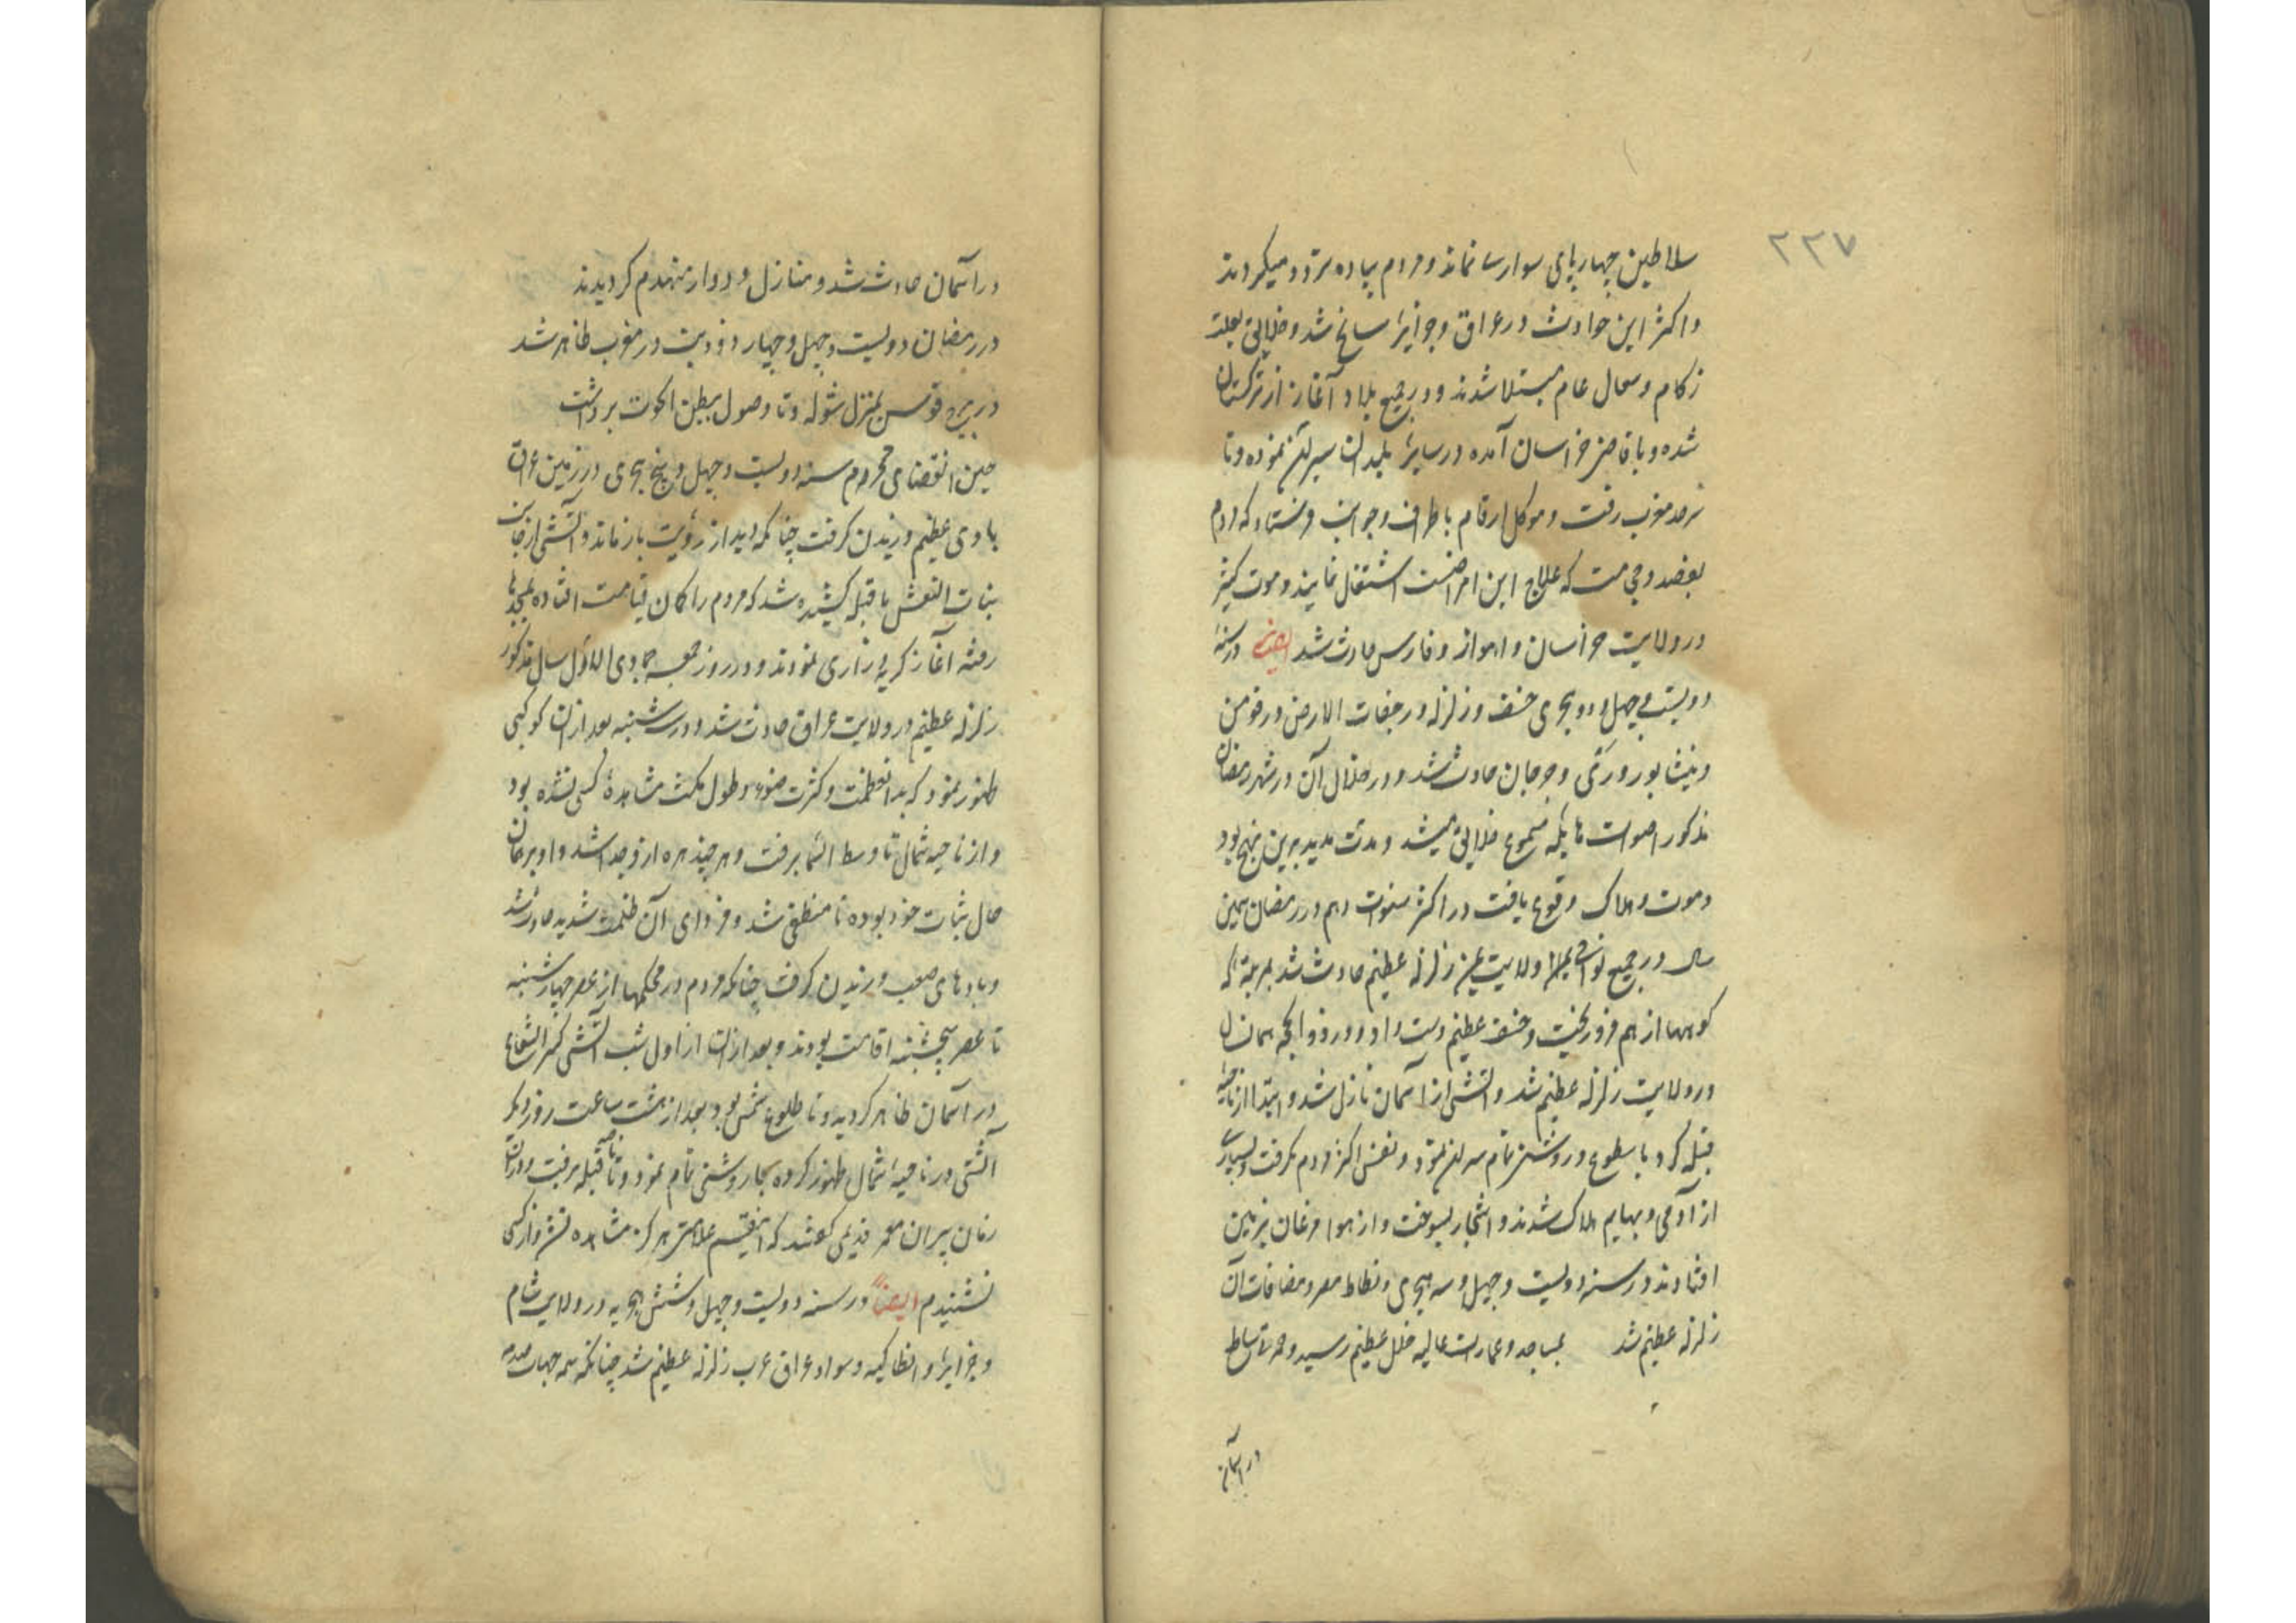 ۲۲۷
سلاطین چهارپای سوار نماند و مردم پیاده تردد میکردند
و اکثر این حوادث در عراق و جزایر سانح شد و خلایق بعلت
زکام و سعال عام مبتلا شدند و در جمیع بلاد آغاز از ترکستان
شده و باقاصی خراسان آمده در سایر بلدان سیران نموده و تا
سرحد مغرب رفت و ارقام باطراف و جوانب فرستاد که مردم
بفصد و حجامت که علاج این امراضست اشتغال نمایند و موت کثیر
در ولایت خراسان و اهواز و فارس حادث شد ایضا در سنه
دویست و چهل و دو هجری خسف و زلزله و رجفات الارض در قومس
و نیشابور و ری و جرجان حادث شد و در خلال آن در شهر رمضان
مذکور اصوات هایله مسموع خلایق میشد و مدت مدید برین نهج بود
و موت و هلاک وقوع یافت در اکثر سنوات و هم در رمضان همین
سال در جمیع ولایت یمن زلزله عظیم حادث شد بمرتبه که
کوهها از هم فرو ریخت و خسف عظیم دست داد و در ذو الحجه همان سال
در ولایت زلزله عظیم شد و آتشی از آسمان نازل شد و ابتدا از ناحیه
قبله کرد با سطوع و روشنی تمام نمود و نفس اکثر مردم بگرفت و بسیاری
از آدمی و بهایم هلاک شدند و اشجار بسوخت و از هوا مرغان بزمین
افتادند در سنه دویست و چهل و سه هجری در مصر و مضافات آن
زلزله عظیم شد بمساجد و عمارات عالیه خلل عظیم رسید و حمرة ساطع
در آسمان
در آسمان حادث شد و منازل و دوار منهدم کردیدند
در رمضان دویست و چهل و چهار در مغرب ظاهر شد
در برج قوس بمنزل شوله و تا وصول ببطن الحوت برداشت
حین انقضای محرم سنه دویست و چهل و پنج هجری در زمین عراق
بادی عظیم وزیدن کرفت چنانکه دیده از رؤیت بازماند و آتشی از جانب
بنات النعش با قبله کشیده شد که مردم را کمان قیامت افتاده بمسجدها
رفته آغاز کریه و زاری نمودند و در روز جمعه جمادی الاول سال مذکور
زلزله عظیم در ولایت عراق حادث شد و در سه شنبه بعد از آن کوکبی
ظهور نمود که بدان عظمت و کثرت ضوء و طول مکث مشاهدهٔ کسی نشده بود
و از ناحیه شمال تا وسط السما برفت و هر چند پاره از او جدا شد و او برهمان
حال ثبات خود بوده تا منطفی شد و فردای آن ظلمت شدید حادث شد
و بادهای صعب وزیدن کرفت چنانکه مردم در محکمها از عصر چهارشنبه
تا عصر پنجشنبه اقامت بودند و بعد از آن از اول شب آتشی کثیر الشعاع
در آسمان ظاهر کردید و تا طلوع شمس بود بعد از هشت ساعت روز دیکر
آتشی در ناحیه شمال ظهور کرده بنار روشنی تمام نمود و تا ناحیه قبله برفت و در آن
زمان پیران معمر قدیمی کفتند که این قسم علامتی هرکز مشاهده نشد و از کسی
نشنیدم ایضاً در سنه دویست و چهل و شش هجریه در ولایت شام
و جزایر و انطاکیه و سواد عراق عرب زلزله عظیم شد چنانکه همه جهات